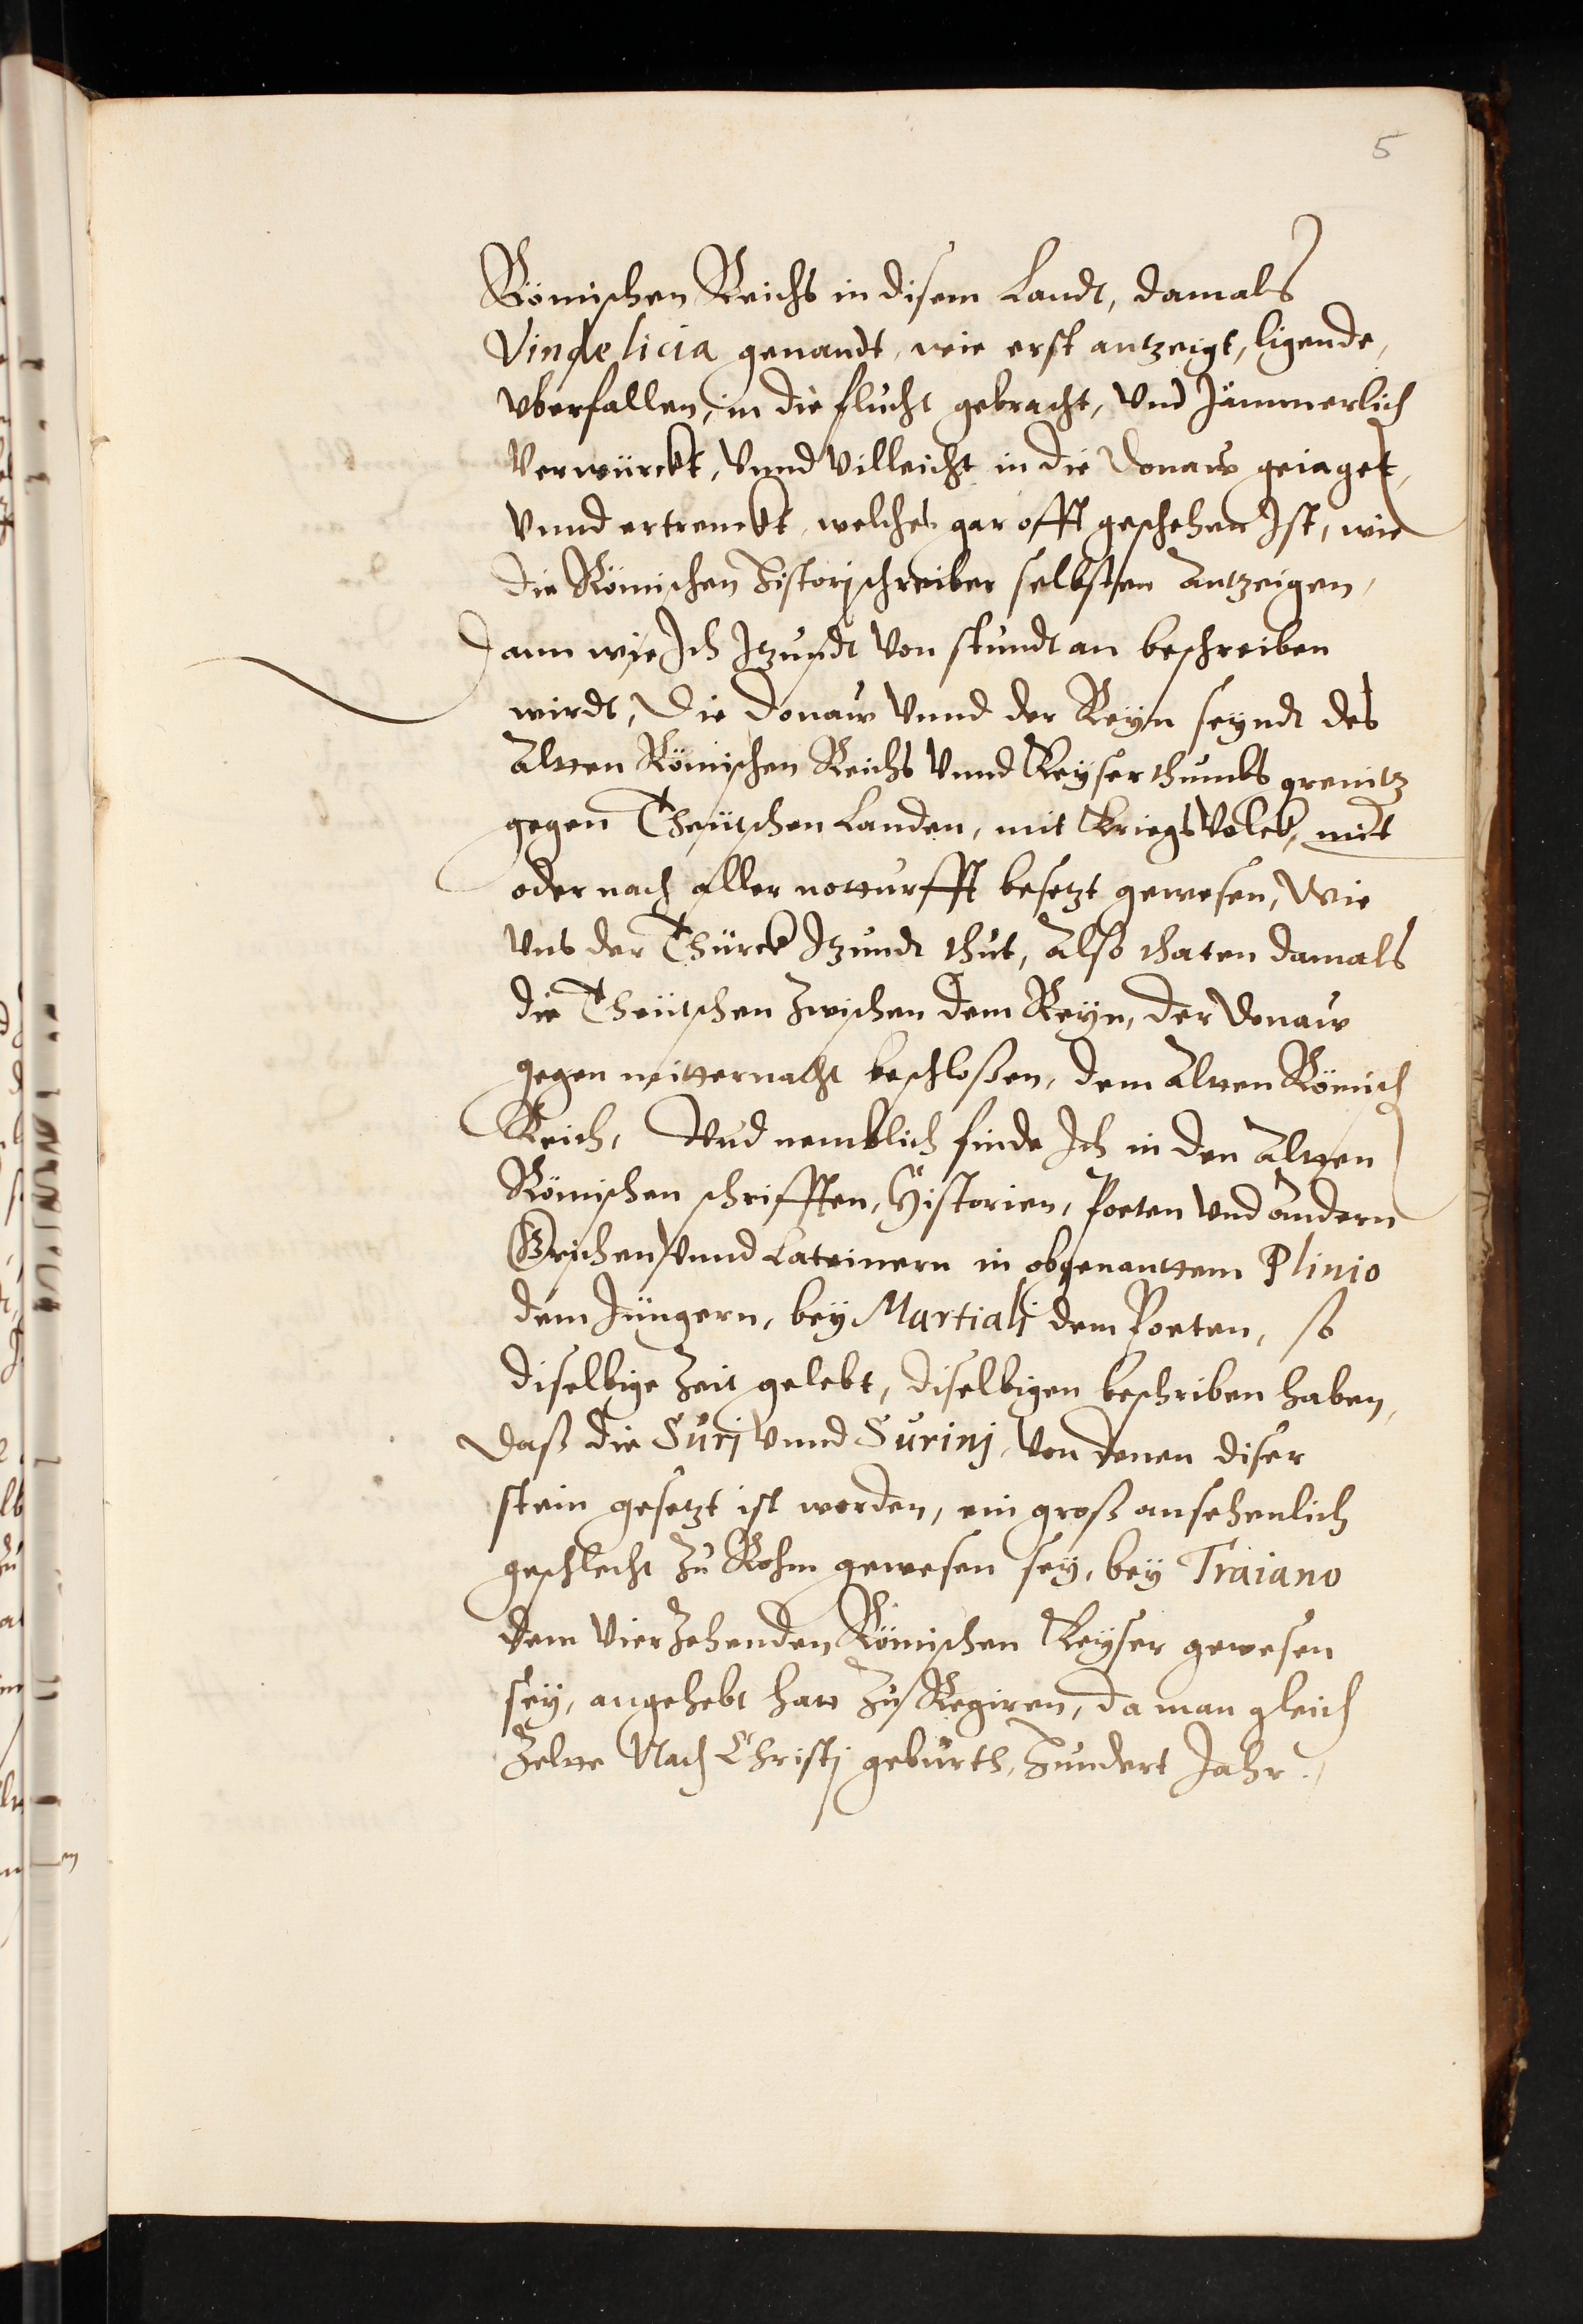 5
Römischen Reichs in disem Landt, damals
Vindelicia genandt, wie erst antzeigt, ligende,
vberfallen, in die flucht gebracht, vnd Jämmerlich
verwürckt, vnnd villeicht in die Donaw geiaget,
vnnd ertrenckt, welches gar offt geschehen Ist, wie
die Römischen Historjschreiber selbsten Antzeigen,
Dann wie Ich Jtzundt von stundt an beschreiben
wirdt, Die Donaw vnnd der Reyn seyndt des
Alten Römischen Reichs vnnd Keyserthumbs grenitz
gegen Theütschen Landen, mit Kriegs Volck, mit
oder nach aller notturfft besetzt gewesen, Wie
vns der Thürck Jtzundt thut, Also thaten damals
die Theütschen zwischen dem Reyn, der Donaw
gegen mitternacht beschloßen, dem Alten Römisch
Reich, Vnd nemblich finde Ich in den Alten
Römischen schrifften, Historien, Poeten vnd andern
Grichen vnnd Lateinern in obgenanttem Plinio
dem Jüngern, bey Martialj dem Poeten, so
diselbige Zeit gelebt, diselbigen beschriben haben,
daß die Surj vnnd Surinj, von denen diser
stein gesetzt ist worden, ein groß ansehenlich
geschlecht zu Rohm gewesen sey, bey Traiano
dem vierzehenden Römischen Keyser gewesen
sey, angehebt hatt zu Regiren, da man gleich
Zelte Nach Christj geburth, Hundert Jahr.